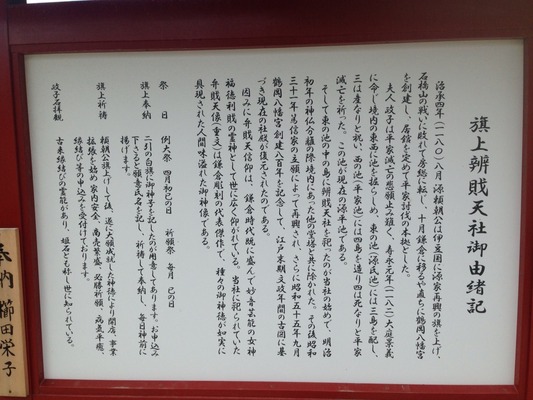 旗上辨財天社御由緒記
治承四年(一一八〇)八月 源頼朝公は伊豆国に源家再興の旗を上げ、
石橋山の戦いに敗れて房総に転じ、十月鎌倉に移るや直ちに鶴岡八幡宮
を創建し、居館を定めて平家討伐の本拠とした。
夫人政子は平家滅亡の悲願止み難く、寿永元年(一一八二)大庭景義
に命じ境内の東西に池を掘らしめ、東の池(源氏池)には三島を配し、
三は産なりと祝い、西の池(平家池)には四島を造り四は死なりと平家
滅亡を祈った。この池が現在の源平池である。
そして東の池の中の島に辨財天社を祀ったのが当社の始めで、明治
初年の神仏分離の際境内にあった他の堂塔と共に除かれた。その後昭和
三十一年篤信家の主願によって再興され、さらに昭和五十五年九月
鶴岡八幡宮創建八百年を記念して、江戸末期文政年間の古図に基
づき現在の社殿が復元されたのである。
因みに弁財天信仰は、鎌倉時代既に盛んで妙音芸能の女神
福徳利財の霊神として世に広く仰がれている。当社に祀られていた
弁財天像(重文)は鎌倉彫刻の代表傑作で、種々の御神徳が如実に
具現された人間味溢れた御神像である。
祭 日 例大祭 四月初巳の日 祈願祭 毎月 巳の日
旗上奉納 二引の白旗に御神号を記したのが用意してあります。お申込み
下さると願意氏名を記し、祈祷して奉納し、毎日神前に
揚げます。
旗上祈祷 頼朝公旗上げして後、遂に大願成就した神徳により開店、事業
拡張を始め家内安全、商売繁盛、必勝祈願、病気平癒、
縁結び等の申込みを受付けております。
政子石拝観 古来縁結びの霊能があり、姫石とも称し世に知られている。
奉納 櫛田栄子